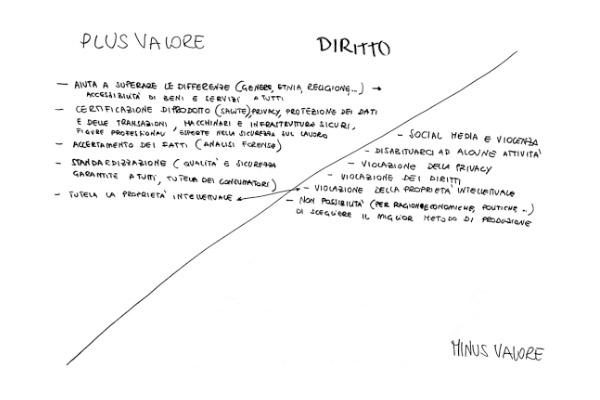 PLUS VALORE
DIRITTO
— AIUTA A SUPERARE LE DIFFERENZE (GENERE, ETNIA, RELIGIONE...) →
ACCESSIBILITÀ DI BENI E SERVIZI A TUTTI
— CERTIFICAZIONE DI PRODOTTO (SALUTE), PRIVACY, PROTEZIONE DEI DATI
E DELLE TRANSAZIONI, MACCHINARI E INFRASTRUTTURE SICURI,
FIGURE PROFESSIONALI ESPERTE NELLA SICUREZZA SUL LAVORO
— ACCERTAMENTO DEI FATTI (ANALISI FORENSE)
— STANDARDIZZAZIONE (QUALITÀ E SICUREZZA
GARANTITE A TUTTI, TUTELA DEI CONSUMATORI)
— TUTELA LA PROPRIETÀ INTELLETTUALE
— SOCIAL MEDIA E VIOLENZA
— DISABITUARCI AD ALCUNE ATTIVITÀ
— VIOLAZIONE DELLA PRIVACY
— VIOLAZIONE DEI DIRITTI
— VIOLAZIONE DELLA PROPRIETÀ INTELLETTUALE
— NON POSSIBILITÀ (PER RAGIONI ECONOMICHE, POLITICHE...)
DI SCEGLIERE IL MIGLIOR METODO DI PRODUZIONE
MINUS VALORE